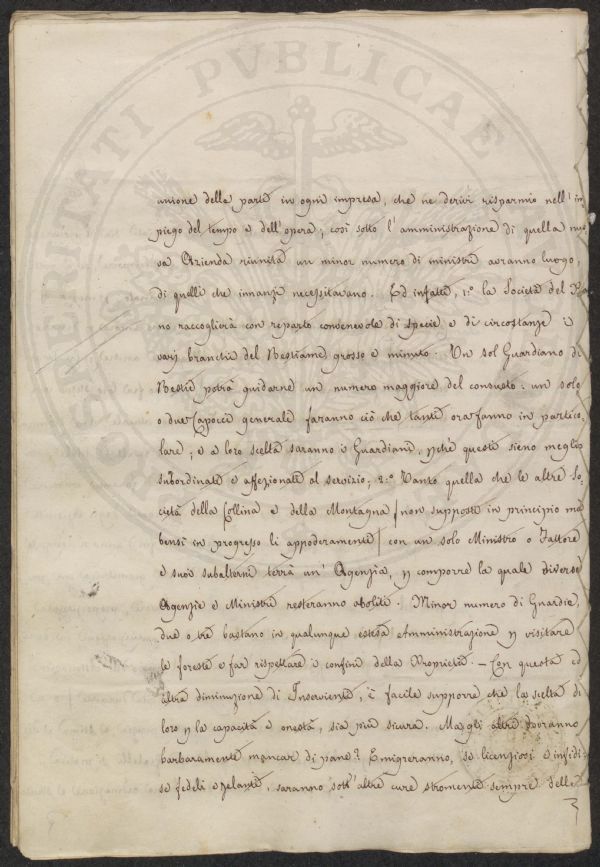 POSTERITATI PVBLICAE
unione delle parti in ogni impresa, che ne derivi risparmio nell'im
piego del tempo e dell'opera; così sotto l'amministrazione di quella nu
sa Azienda riunita un minor numero di ministri avranno luogo,
di quelli che innanzi necessitavano. Ed infatti, 1.º la Società del
no raccoglierà con reparto convenevole di specie e di circostanze i
varj branchi del Bestiame grosso e minuto. Un sol Guardiano di
Bestie potrà guidarne un numero maggiore del consueto: un solo
o due Capocci generali faranno ciò che tanti ora fanno in partico,
lare; e a loro scelta saranno i Guardiani, pchè questi sieno meglio
subordinati e affezionati al servizio; 2.º Tanto quella che le altre So,
cietà della Collina e della Montagna (non supposte in principio ma
bensì in progresso li appoderamenti) con un solo Ministro o Fattore
e suoi subalterni terrà un' Agenzia, p comporre la quale diverse
Agenzie e Ministri resteranno aboliti. Minor numero di Guardie,
due o tre bastano in qualunque estesa Amministrazione p visitare
le foreste e far rispettare i confini della Proprietà. — Con questa ed
altre diminuzione di Inservienti, è facile supporre che la scelta di
loro p la capacità e onestà, sia più sicura. Ma gli altri dovranno
barbaramente mancar di pane? Emigreranno, se licenziosi e infidi;
se fedeli e zelanti, saranno sott'altre cure stromenti sempre della